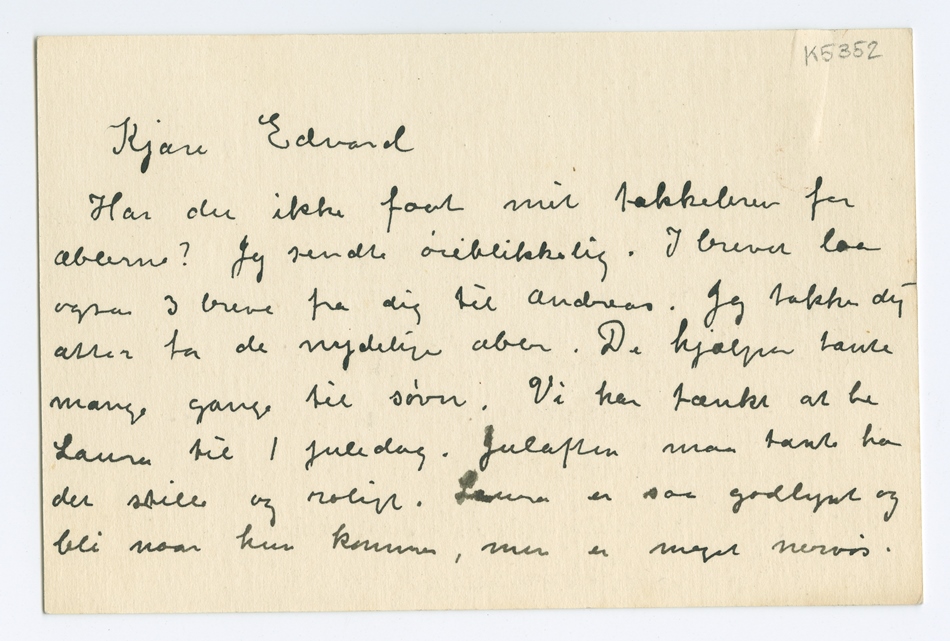 K5352
Kjære Edvard
Har du ikke faat mit takkebrev for
æblerne? Jeg sendte øieblikkelig. I brevet laa
ogsaa 3 breve fra dig til Andreas. Jeg takker dig
atter for de nydelige æbler. De hjælper tante
mange gange til søvn. Vi har tænkt at be
Laura til 1 juledag. Juleaften maa tante ha
det stille og roligt. Laura er saa godlynt og
bli naar hun kommer, men er meget nervøs.